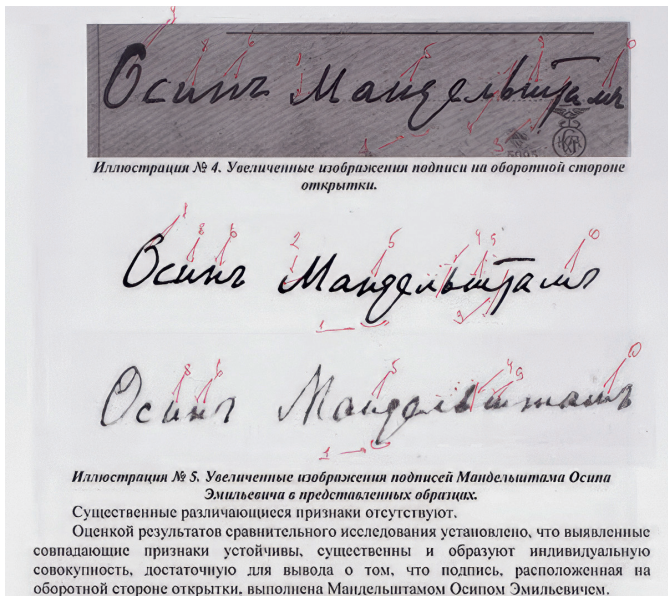 Осипъ Мандельштамъ
Иллюстрация № 4. Увеличенные изображения подписи на оборотной стороне
открытки.
Осипъ Мандельштамъ
Осипъ Мандельштамъ
Иллюстрация № 5. Увеличенные изображения подписей Мандельштама Осипа
Эмильевича в представленных образцах.
Существенные различающиеся признаки отсутствуют.
Оценкой результатов сравнительного исследования установлено, что выявленные
совпадающие признаки устойчивы, существенны и образуют индивидуальную
совокупность, достаточную для вывода о том, что подпись, расположенная на
оборотной стороне открытки, выполнена Мандельштамом Осипом Эмильевичем.